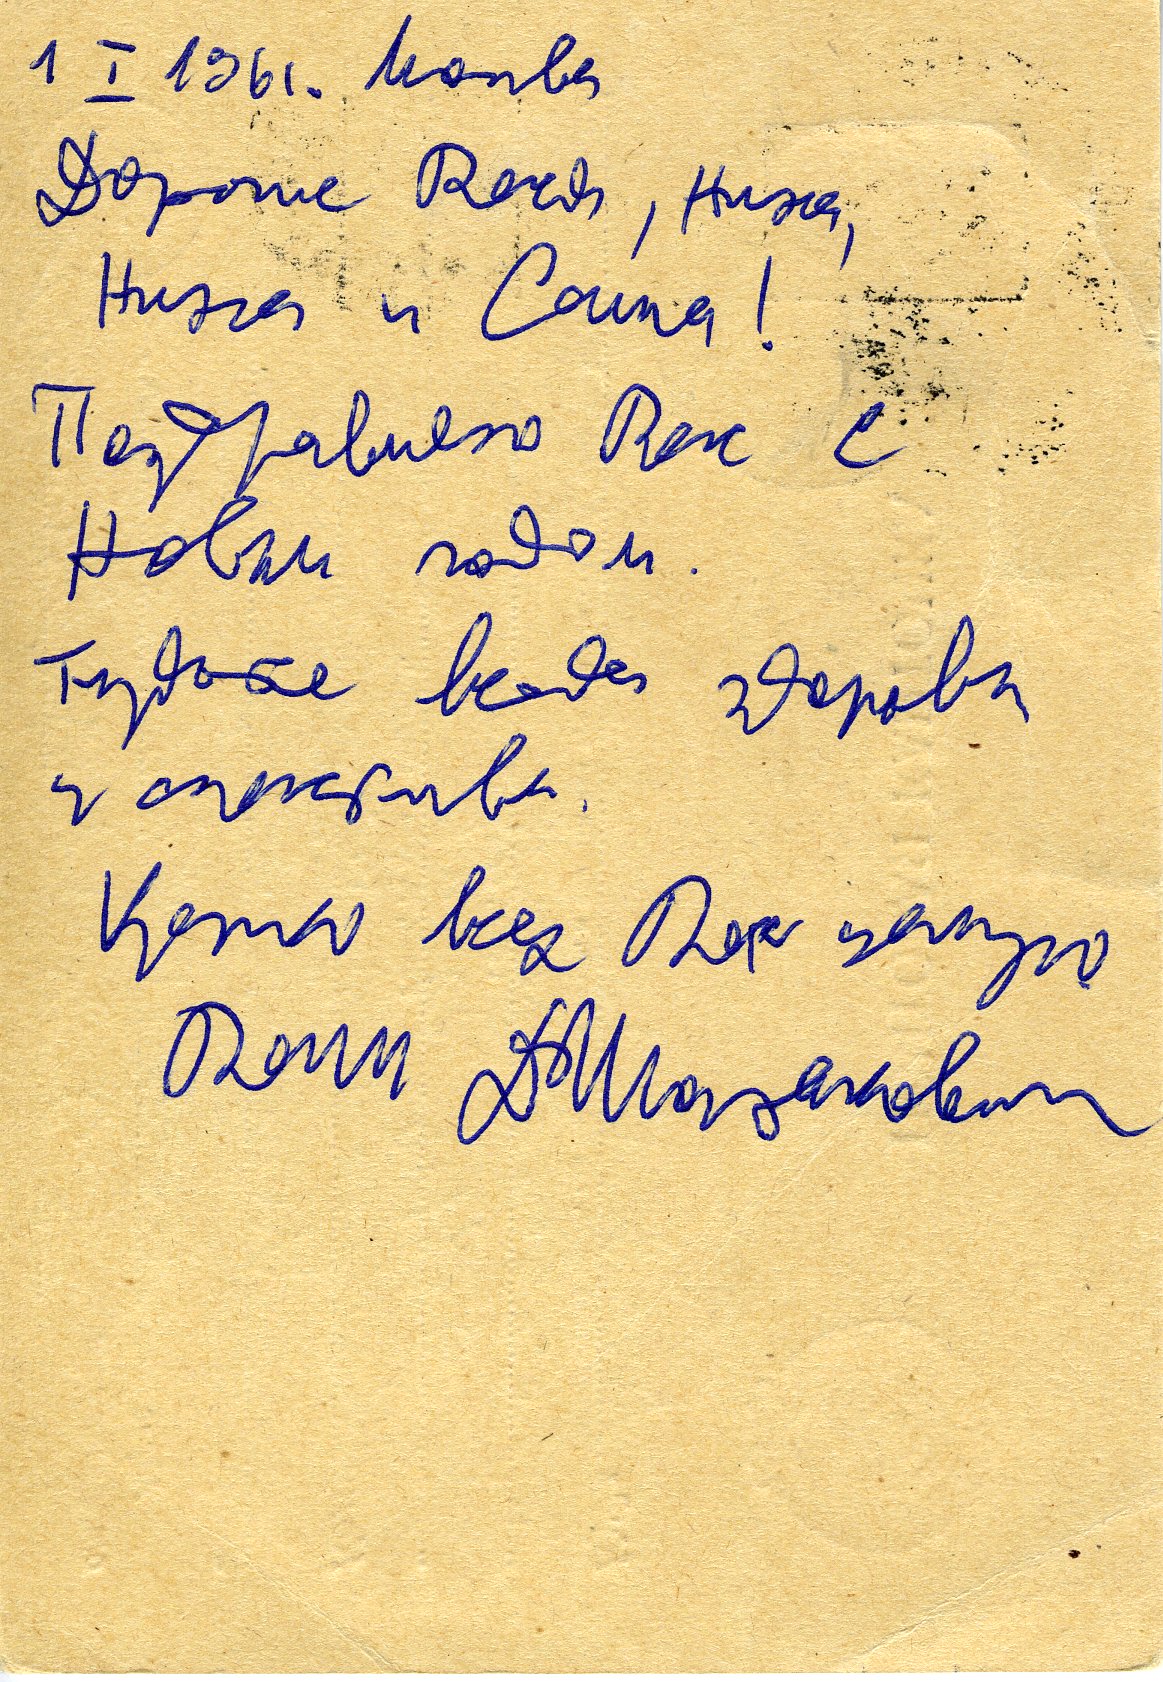 1 I 1961. Москва
Дорогие Ваня, Нина,
Нина и Саша!
Поздравляю Вас с
Новым годом.
Будьте всегда здоровы
и счастливы.
Крепко всех Вас целую
Ваш ДШостакович